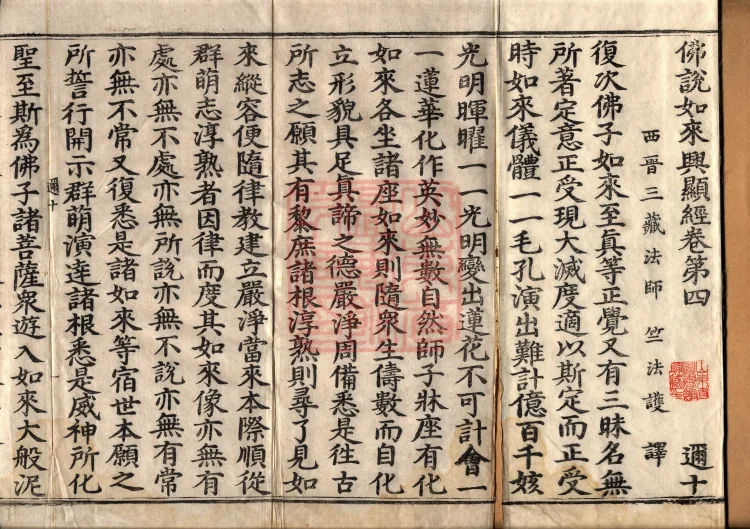 佛說如來興顯經卷第四 邇十
西晉三藏法師竺法護譯
復次佛子如來至真等正覺又有三昧名無
所著定意正受現大滅度適以斯定而正受
時如來儀體一一毛孔演出難計億百千姟
光明暉曜一一光明變出蓮花不可計會一
一蓮華化作英妙無數自然師子牀座有化
如來各坐諸座如來則隨衆生儔數而自化
立形貌具足真諦之德嚴淨周備悉是往古
所志之願其有黎庶諸根淳熟則尋了見如
來縱容便隨律教建立嚴淨當來本際順從
群萌志淳熟者因律而度其如來像亦無有
處亦無不處亦無所說亦無不說亦無有常
亦無不常又復悉是諸如來等宿世本願之
所誓行開示群萌演達諸根悉是威神所化
邇十
聖至斯為佛子諸菩薩衆遊入如來大般泥